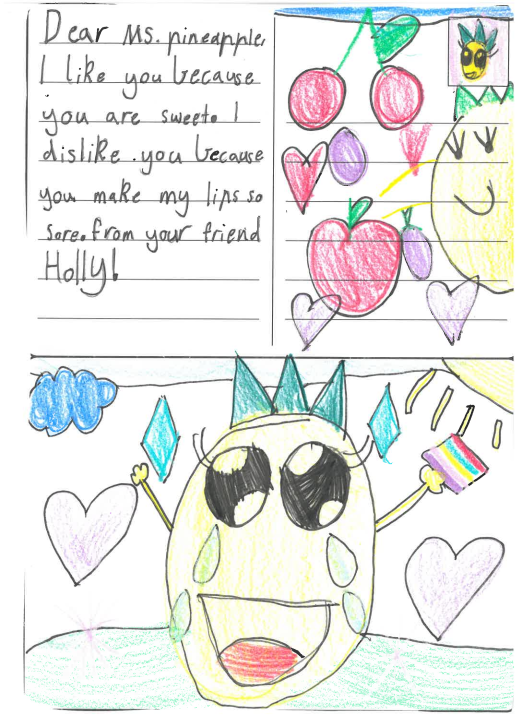 Dear Ms. pineapple,
I like you because
you are sweet. I
dislike you because
you make my lips so
sore. from your friend
Holly!